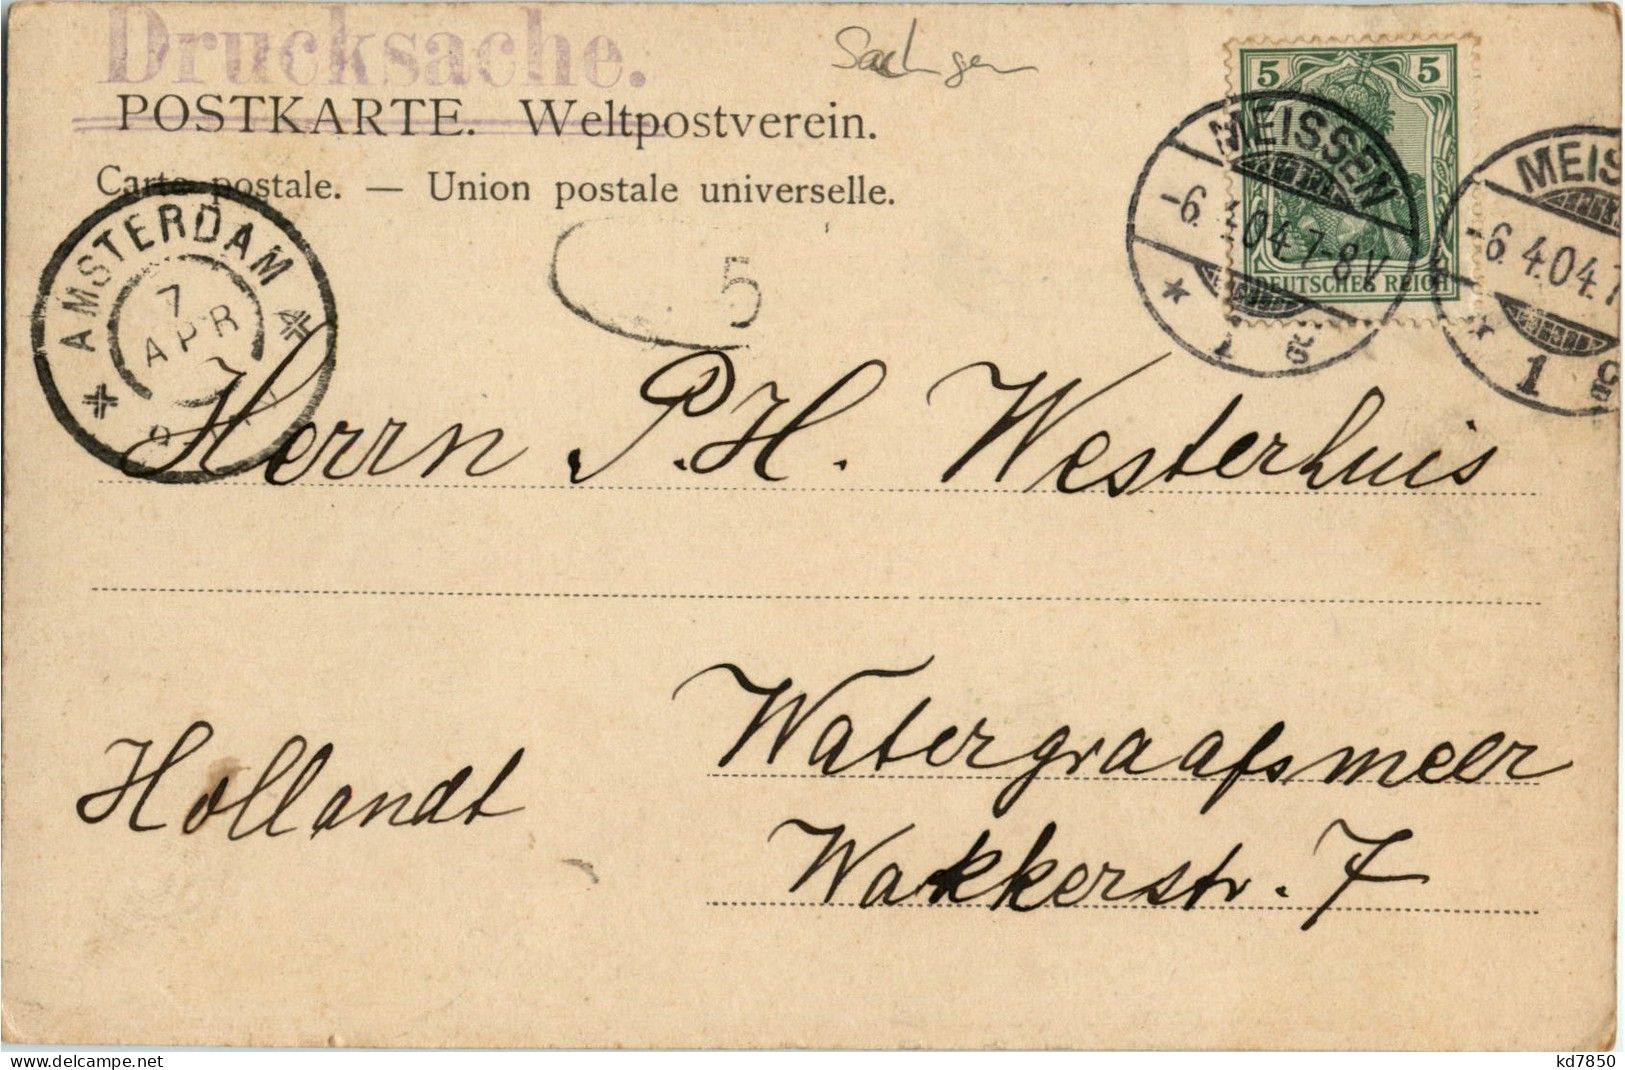 Drucksache.
Sachsen
POSTKARTE. Weltpostverein.
Carte postale. — Union postale universelle.
5 5
DEUTSCHES REICH
MEISSEN
-6.4.04.7-8V
* 1 g
MEIS
-6.4.04.7
* 1 g
AMSTERDAM
7
APR
5
Herrn P.H. Westerhuis
Watergraafsmeer
Hollandt
Wakkerstr. 7
www.delcampe.net
kd7850